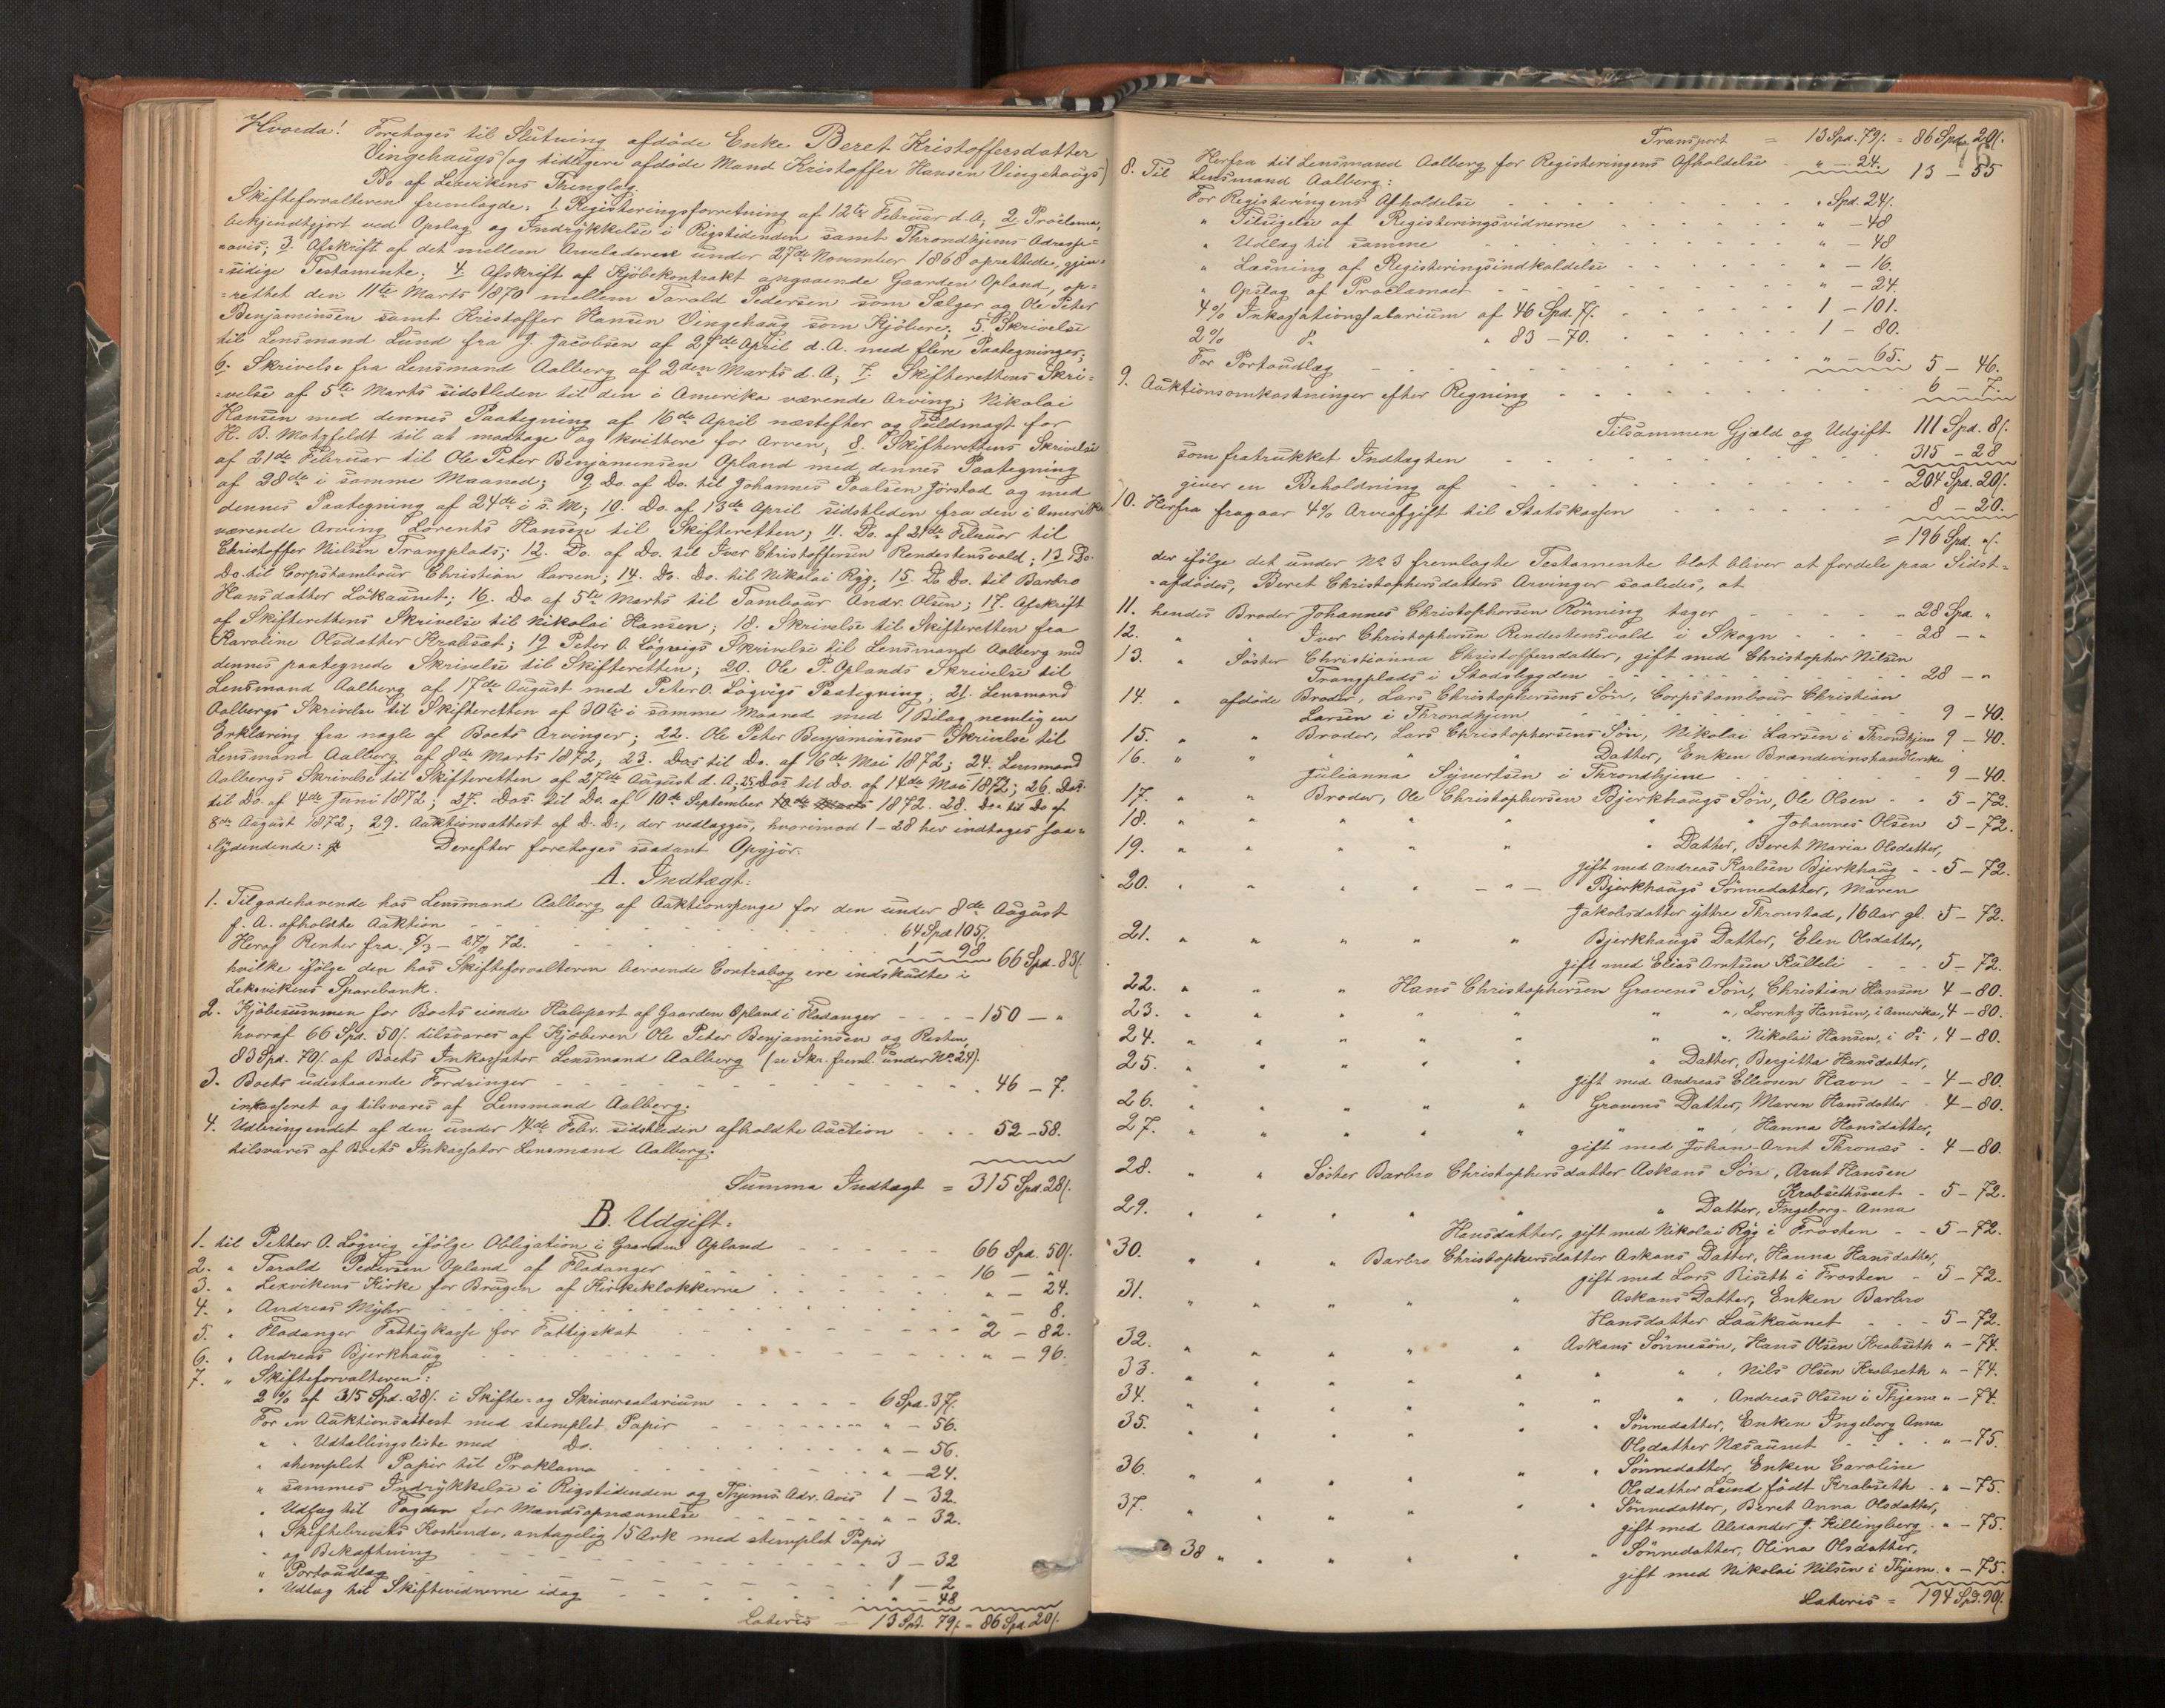 Hvorda! Foretoges til Slutning afdøde Enke Beret Kristoffersdatter
Vingehaugs (og tidligere afdøde Mand Kristoffer Hansen Vingehaugs)
Bo af Lexvikens Thinglag.
Skifteforvalteren fremlagde: 1. Registreringsforretning af 12te Februar d. A; 2. Proclama,
bekjendtgjort ved Opslag og Indrykkelse i Rigstidenden samt Throndhjems Adresse=
=avis; 3. Afskrift af det mellem Arveladerne under 27de November 1868 oprettede, gjen=
=sidige Testamente; 4. Afskrift af Kjøbekontrakt angaaende Gaarden Opland, op=
=rettet den 11te Marts 1870 mellem Tarald Pedersen som Sælger og Ole Peter
Benjaminsen samt Kristoffer Hansen Vingehaug som Kjøbere; 5. Skrivelse
til Lensmand Lund fra J. Jacobsen af 27de April d. A. med flere Paategninger;
6. Skrivelse fra Lensmand Aalberg af 2den Marts d. A; 7. Skifterettens Skri=
=velse af 5te Marts sidstleden til den i Amerika værende Arving; Nikolai
Hansen med dennes Paategning af 16de April næstefter og Fuldmagt for
H. B. Motzfeldt til at modtage og kvittere for Arven; 8. Skifterettens Skrivelse
af 21de Februar til Ole Peter Benjaminsen Opland med dennes Paategning
af 28de i samme Maaned; 9. Do. af Do. til Johannes Paalsen Jørstad og med
dennes Paategning af 24de i s. M; 10. Do. af 13de April sidstleden fra den i Amerika
værende Arving Lorents Hansen til Skifteretten; 11. Do. af 21de Februar til
Christoffer Nielsen Trangplads; 12. Do. af Do. til Iver Christoffersen Rendestensvald; 13. Do.
Do. til Corpstambour Christian Larsen; 14. Do. Do. til Nikolai Ryg; 15. Do Do. til Barbro
Hansdatter Lökaunet; 16. Do. af 5te Marts til Tambour Andr. Olsen; 17. Afskrift
af Skifterettens Skrivelse til Nikolai Hansen; 18. Skrivelse til Skifteretten fra
Karoline Olsdatter Krabsæt; 19 Peter O. Løgvigs Skrivelse til Lensmand Aalberg med
dennes paategnede Skrivelse til Skifteretten; 20. Ole P. Oplands Skrivelse til
Lensmand Aalberg af 17de August med Peter O. Løgvigs Paategning; 21. Lensmand
Aalbergs Skrivelse til Skifteretten af 30te i samme Maaned med 1 Bilag nemlig en
Erklæring fra nogle af Boets Arvinger; 22. Ole Peter Benjaminsens Skrivelse til
Lensmand Aalberg af 8de Marts 1872; 23. Dos til Do. af 16de Mai 1872; 24. Lensmand
Aalbergs Skrivelse til Skifteretten af 27de August d. A; 25. Dos til Do. af 14de Mai 1872; 26. Dos
til Do. af 4de Juni 1872; 27. Dos. til Do. af 10de September 1872. 28. Do. til Do af
8de August 1872; 29. Auktionsattest af D. D., der vedlægges, hvorimod 1-28 her indtages saa=
=lydendende:
Derefter foretoges saadant Opgjør.
A. Indtægt:
1. Tilgodehavende hos Lensmand Aalberg af Auktionspenge for den under 8de August
f. A. afholdte Auktion - - - 64 Spd 105/.
Heraf Renter fra 5/3 - 27/9 72. - - - 1 - 98 66 Spd. 83/.
hvilke ifølge den hos Skifteforvalteren beroende Contrabog ere indskudte i
Leksvikens Sparebank.
2. Kjøbesummen for Boets eiende Halvpart af Gaarden Opland i Fladanger - - - 150 - "
hvoraf 66 Spd. 50/. tilsvares af Kjøberen Ole Peter Benjaminsen og Resten,
83 Spd. 70/. af Boets Inkassator Lensmand Aalberg (se Skr. freml. under No. 24).
3. Boets udestaaende Fordringer - - - 46 - 7.
inkasseret og tilsvares af Lensmand Aalberg.
4. Udbringendet af den under 14de Febr. sidstleden afholdte Auction - - - 52 - 58.
tilsvares af Boets Inkassator Lensmand Aalberg.
Summa Indtægt = 315 Spd. 28/.
B. Udgift:
1. til Petter O. Løgvig ifølge Obligation i Gaarden Opland - - - 66 Spd. 50/.
2. " Tarald Pedersen Opland af Fladanger - - - 16 - "
3. " Lexvikens Kirke for Brugen af Kirkeklokkerne - - - " - 24.
4. " Andreas Myhr - - - " - 8.
5. " Fladanger Fattigkasse for Fattigskat - - - 2 - 82.
6. " Andreas Bjerkhaug - - - " - 96.
7. " Skifteforvalteren:
2 % af 315 Spd. 28/. i Skifte- og Skriversalarium - - - 6 Spd. 37/.
For en Auktionsattest med stemplet Papir - - - " - 56.
" " Udtallingsliste med Do. - - - " - 56.
" stemplet Papir til Proklama - - - " - 24.
" sammes Indrykkelse i Rigstidenden og Thjems Adr. Avis 1 - 32.
" Udlæg til Fogden for Mandsopnævnelse - - - " - 32.
" Skiftebrevets Kostende, antagelig 15 Ark med stemplet Papir
og Bekræftning - - - 3 - 32
" Portoudlæg - - - 1 - 2
" Udlæg til Skiftevidnerne idag - - - " - 48
Lateris = 13 Spd. 79/. = 86 Spd. 20/.
Transport = 13 Spd. 79/. = 86 Spd. 20/.
Herfra til Lensmand Aalberg for Registreringens Afholdelse " - 24. 13 - 55
8. Til Lensmand Aalberg:
For Registreringens Afholdelse - - - " Spd. 24/.
" Tilsigelse af Registreringsvidnerne - - - " - 48
" Udlæg til samme - - - " - 48
" Læsning af Registreringsindkaldelse - - - " - 16.
" Opslag af Proclamaet - - - " - 24.
4 % Inkassationssalarium af 46 Spd. 7/. - - - 1 - 101.
2 % Do " 83 - 70. - - - 1 - 80.
For Portoudlæg - - - " - 65. 5 - 46.
9. Auktionsomkostninger efter Regning - - - 6 - 7.
Tilsammen Gjæld og Udgift 111 Spd. 8/.
som fratrukket Indtægten - - - 315 - 28
giver en Beholdning af - - - 204 Spd. 20/.
10. Herfra fragaar 4 % Arveafgift til Statskassen - - - 8 - 20.
= 196 Spd. "/.
der ifølge det under No 3 fremlagte Testamente blot bliver at fordele paa Sidst=
=afdødes, Beret Christophersdatters Arvinger saaledes, at
11. hendes Broder Johannes Christophersen Rönning tager - - - 28 Spd. "
12. " " Iver Christophersen Rendestensvald i Skogn - - - 28 - "
13. " Söster Christianna Christoffersdatter, gift med Christopher Nilsen
Trangplads i Stadsbygden - - - 28 - "
14. " afdöde Broder, Lars Christophersens Sön, Corpstambour Christian
Larsen i Throndhjem - - - 9 - 40.
15. " " Broder, Lars Christophersens Sön, Nikolai Larsen i Throndhjem 9 - 40.
16. " " " " Datter, Enken Brændevinshandlerske
Julianna Syvertsen i Throndhjem - - - 9 - 40.
17. " " Broder, Ole Christophersen Bjerkhaugs Sön, Ole Olsen - - 5 - 72.
18. " " " " " " Johannes Olsen 5 - 72.
19. " " " " " " Datter, Beret Maria Olsdatter,
gift med Andreas Karlsen Bjerkhaug - - 5 - 72.
20. " " " " - " - Bjerkhaugs Sönnedatter, Maren
Jakobsdatter yttre Thronstad, 16 Aar gl. 5 - 72.
21. " " " " " Bjerkhaugs Datter, Elen Olsdatter,
gift med Elias Arntsen Kalleli - - - 5 - 72.
22. " " " Hans Christophersen Gravens Sön, Christian Hansen 4 - 80.
23. " " " " " " ", Lorentz Hansen, i Amerika, 4 - 80.
24. " " " " " " ", Nikolai Hansen, i Do, 4 - 80.
25. " " " " " " Datter, Bergitta Hansdatter,
gift med Andreas Ellevsen Havn - - 4 - 80.
26. " " " " " Gravens Datter, Maren Hansdatter - 4 - 80.
27. " " " " " " ", Hanna Hansdatter,
gift med Johan Arnt Thronæs - 4 - 80.
28. " " Söster Barbro Christophersdatter Askans Sön, Arnt Hansen
Krabsethsveet - 5 - 72.
29. " " " " " " Datter, Ingeborg-Anna
Hansdatter, gift med Nikolai Ryg i Frosten - - 5 - 72.
30. " " " Barbro Christophersdatter Askans Datter, Hanna Hansdatter,
gift med Lars Riseth i Frosten - 5 - 72.
31. " " " " " Askans Datter, Enken Barbro
Hansdatter Laukaunet - - - 5 - 72.
32. " " " " " Askans Sönnesön, Hans Olsen Krabseth " - 74.
33. " " " " " " ", Nils Olsen Krabseth " - 74.
34. " " " " " " ", Andreas Olsen i Thjem " - 74.
35. " " " " " " Sönnedatter, Enken Ingeborg Anna
Olsdatter Næsaunet - - - " - 75.
36. " " " " " " Sönnedatter, Enken Caroline
Olsdatter Lund födt Krabseth - " - 75.
37. " " " " " " Sönnedatter, Beret Anna Olsdatter,
gift med Alexander J. Killingberg - " - 75.
38 " " " " " " Sönnedatter, Olina Olsdatter,
gift med Nikolai Nilsen i Thjem. " - 75.
Lateris = 194 Spd. 90/.